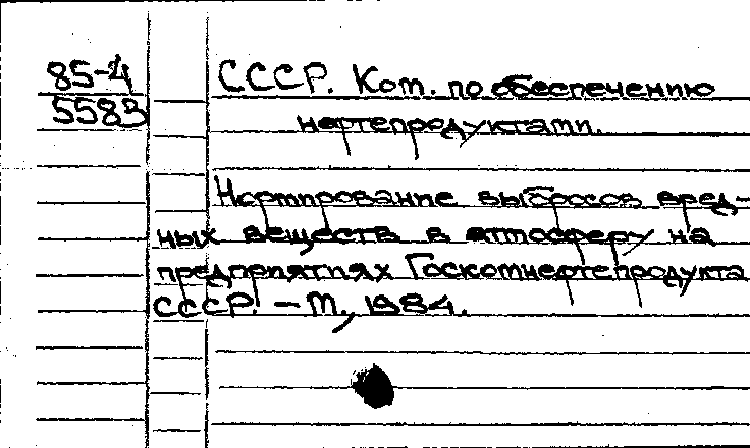 85-4
5583
СССР. Ком. по обеспечению
нефтепродуктами.
Нормирование выбросов вред-
ных веществ в атмосферу на
предприятиях Госкомнефтепродукта
СССР. – М., 1984.